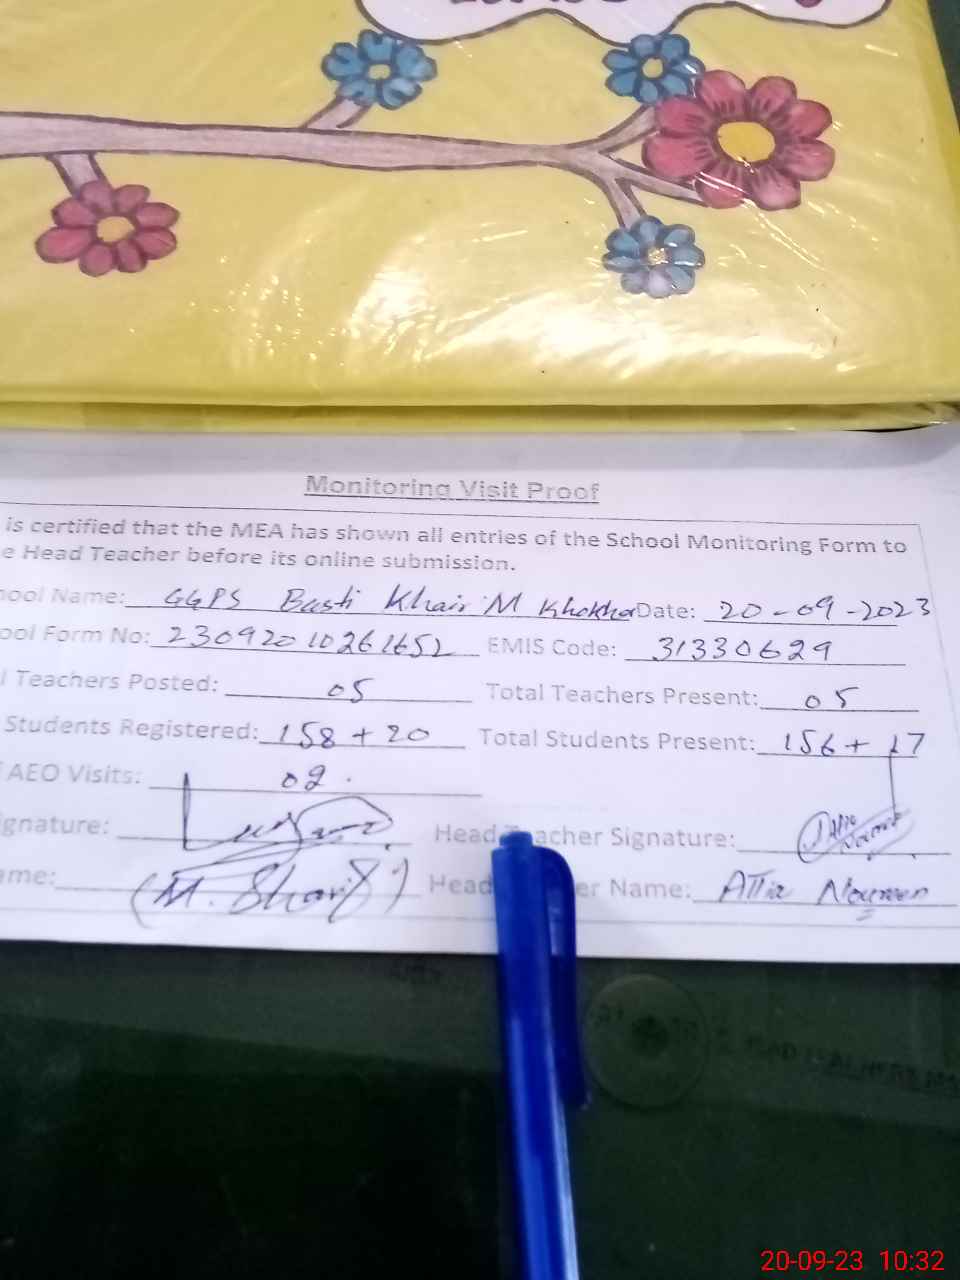 Monitoring Visit Proof
is certified that the MEA has shown all entries of the School Monitoring Form to
e Head Teacher before its online submission.
hool Name: GGPS Basti Khair M Khokhar Date: 20-09-2023
ool Form No: 23092010261652 EMIS Code: 31330629
l Teachers Posted: 05 Total Teachers Present: 05
Students Registered: 158 + 20 Total Students Present: 156 + 17
AEO Visits: 02
gnature: Head Teacher Signature:
ame: (M. Sharif) Head er Name: Attia Noureen
20-09-23 10:32